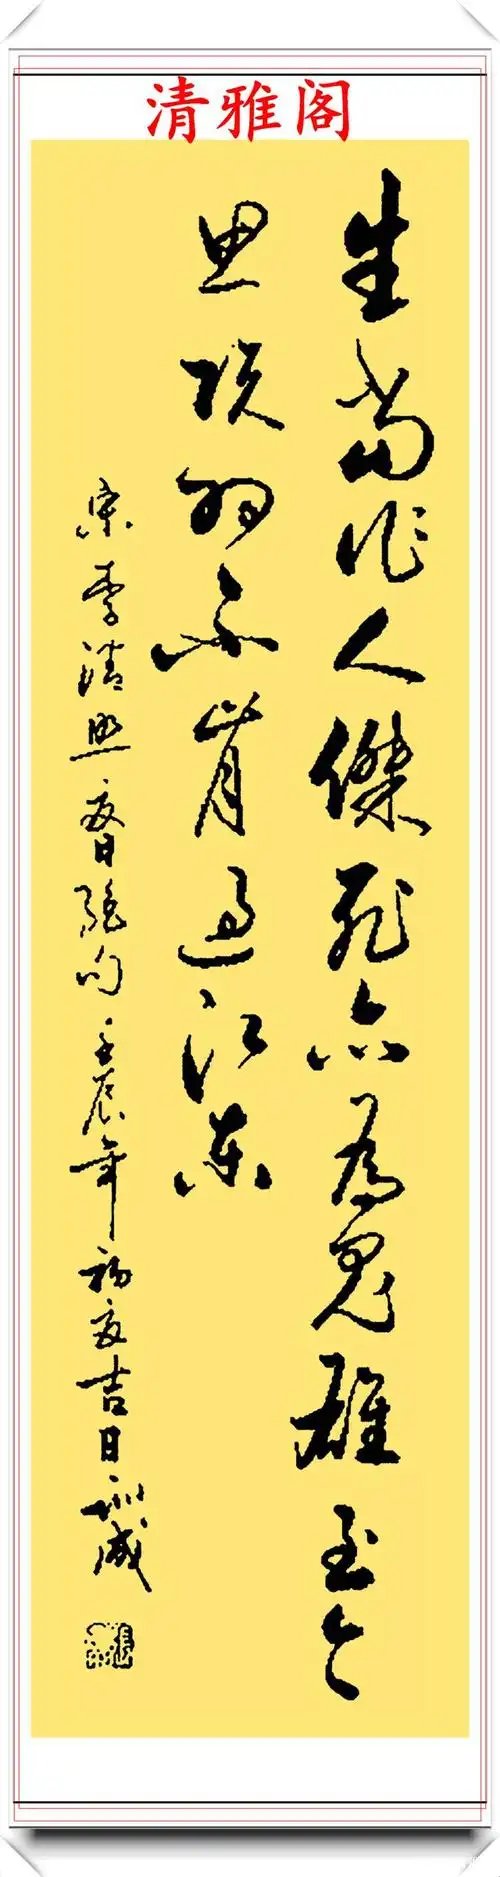 清雅阁
生當作人傑死亦為鬼雄至今
思項羽不肯過江東
宋李清照夏日絕句壬辰年初夏吉日